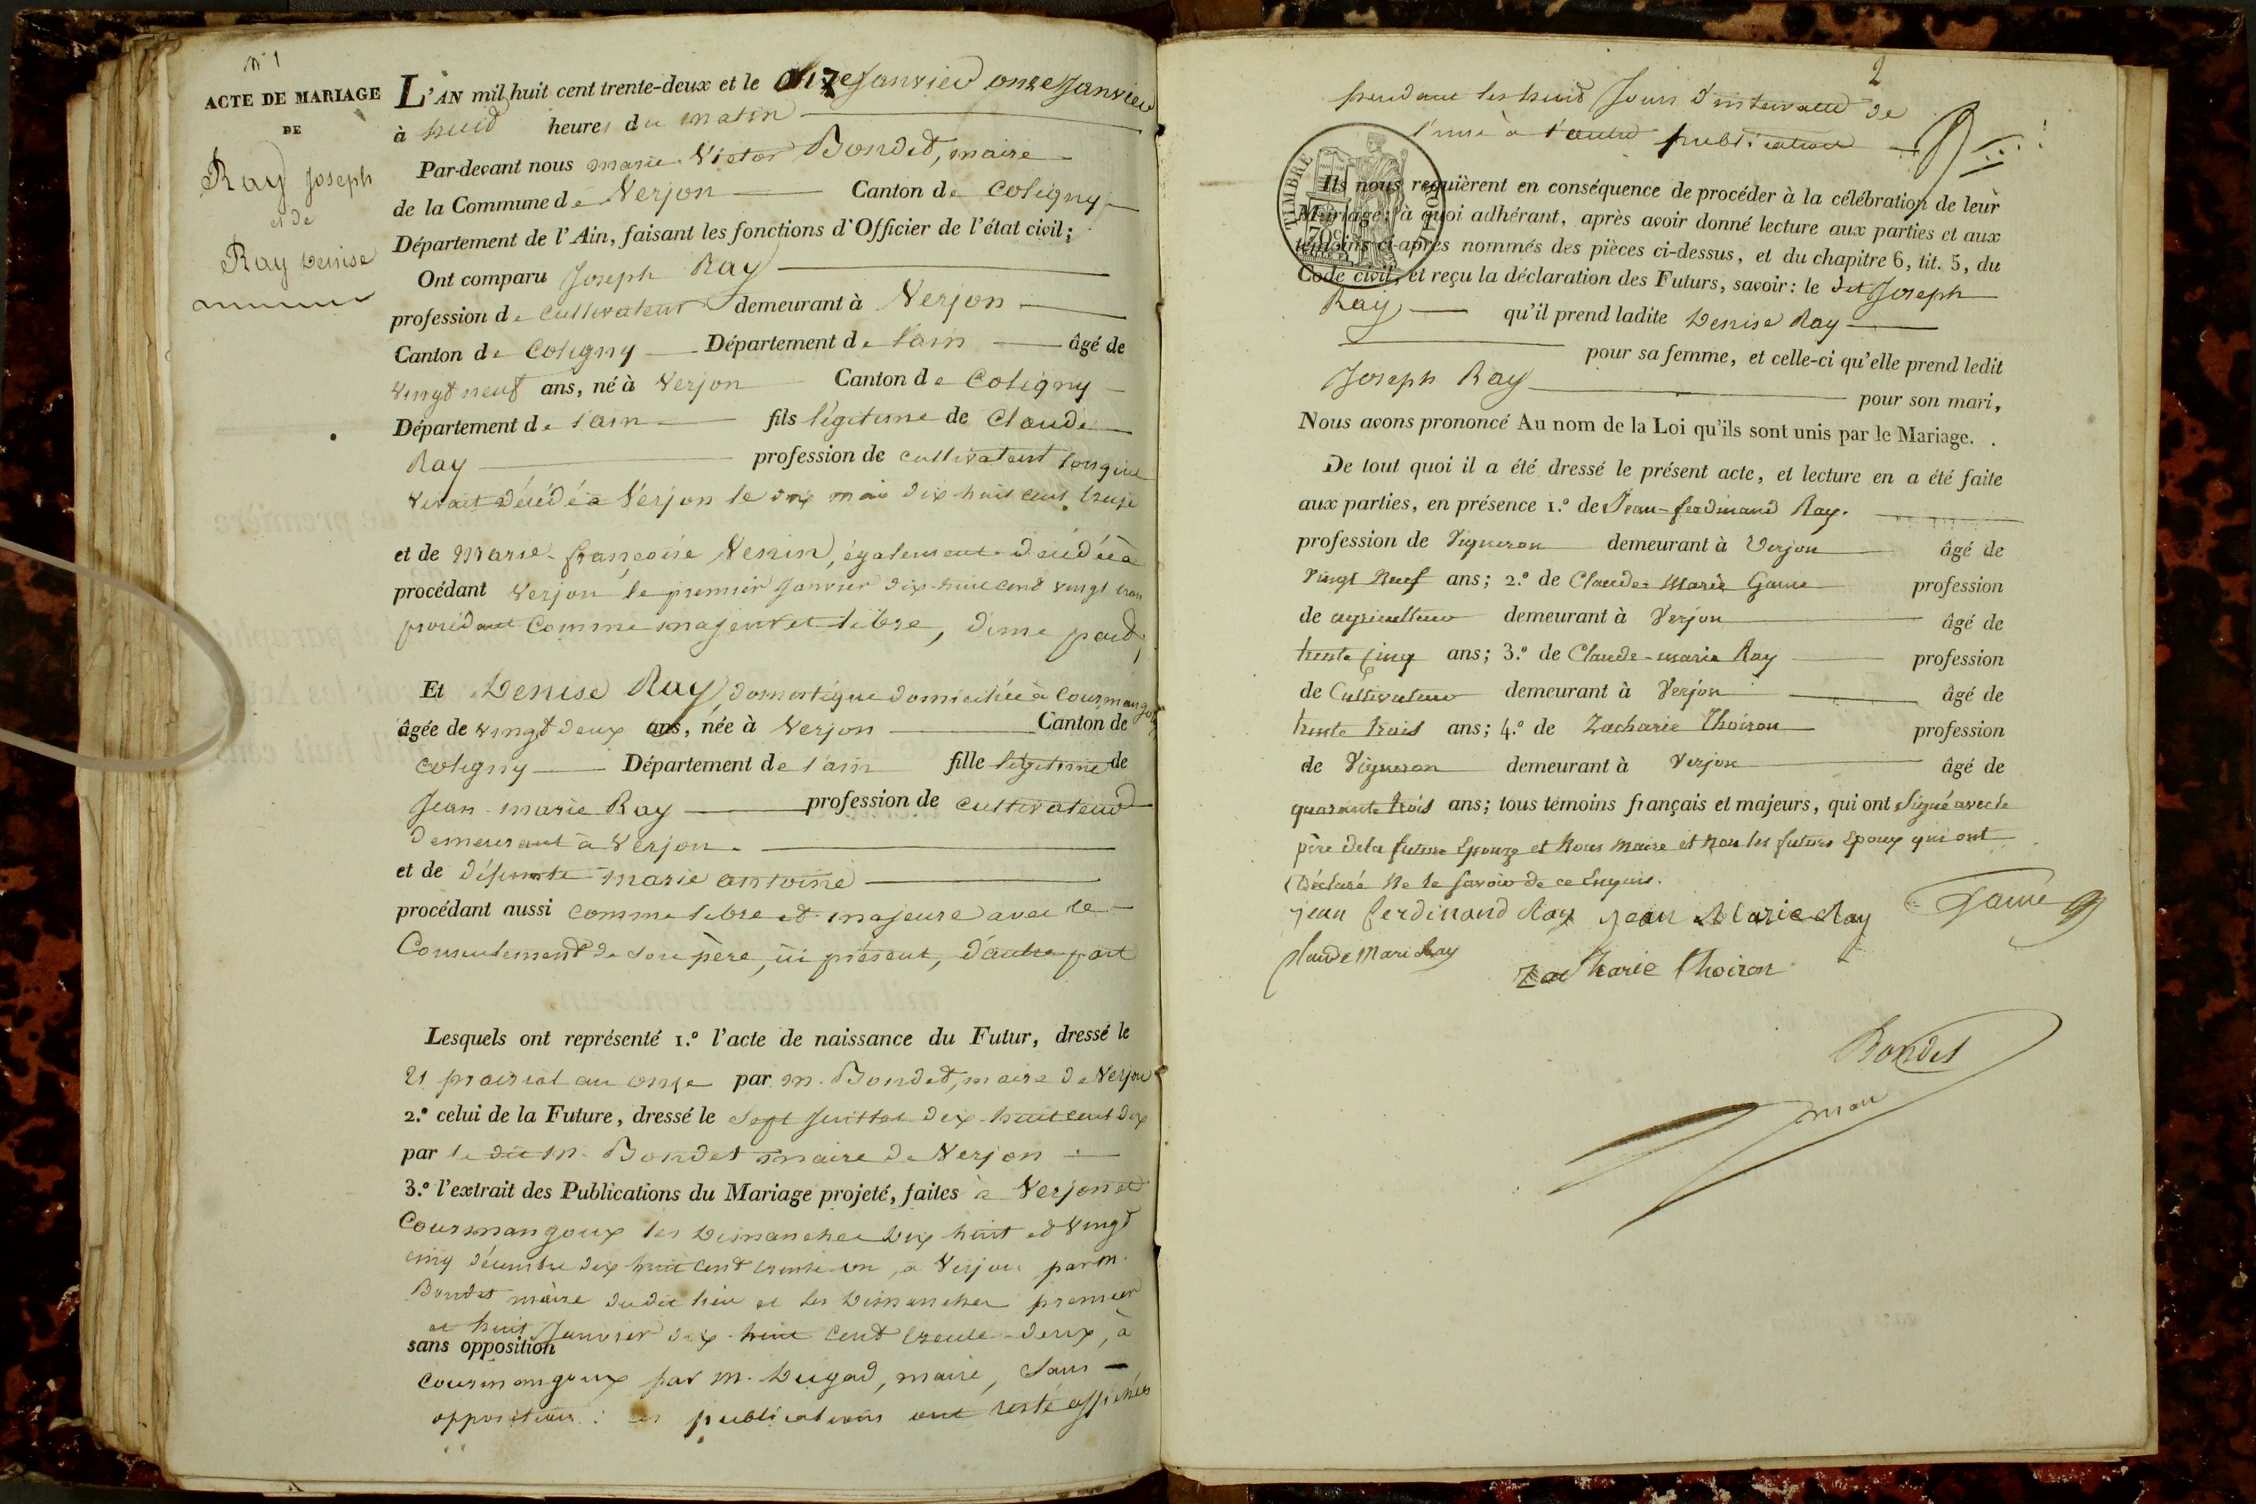 N° 1
ACTE DE MARIAGE
DE
Ray Joseph
et de
Ray Denise
L'AN mil huit cent trente-deux et le onze Janvier onze Janvier
à huit heures du matin
Par-devant nous marie Victor Bondet, maire
de la Commune de Verjon Canton de Coligny
Département de l'Ain, faisant les fonctions d'Officier de l'état civil;
Ont comparu Joseph Ray
profession de cultivateur demeurant à Verjon
Canton de Coligny Département de l'ain âgé de
vingt neuf ans, né à Verjon Canton de Coligny
Département de l'ain fils légitime de Claude
Ray profession de cultivateur lorsqu'il
vivait décédé à Verjon le mai dix huit cent treize
et de Marie-françoise Venin, également décédée à
procédant Verjon le premier Janvier dix-huit cent vingt trois
procédant comme majeur et libre, d'une part,
Et Denise Ray, domestique domiciliée à Courmangoux
âgée de vingt deux ans, née à Verjon Canton de
Coligny Département de l'ain fille légitime de
Jean-marie Ray profession de cultivateur
demeurant à Verjon.
et de défunte marie antoine
procédant aussi comme libre et majeure avec le
Consentement de son père, ici présent, d'autre part
Lesquels ont représenté 1.° l'acte de naissance du Futur, dressé le
21 prairial an onze par m. Bondet, maire de Verjon
2.° celui de la Future, dressé le sept Juillet dix-huit cent dix
par le dit m. Bondet maire de Verjon
3.° l'extrait des Publications du Mariage projeté, faites à Verjon et
Courmangoux les Dimanches dix huit et vingt
cinq décembre dix huit cent trente un, à Verjon par m.
Bondet maire dudit lieu et les Dimanches premier
et huit Janvier dix-huit cent trente-deux, à
sans opposition
Courmangoux par m. Dugad, maire, sans
opposition: les publications ont resté affichées
2
pendant les huit Jours d'intervalle de
l'une à l'autre publication
TIMBRE ROYAL
70c
Ils nous requièrent en conséquence de procéder à la célébration de leur
Mariage; à quoi adhérant, après avoir donné lecture aux parties et aux
témoins ci-après nommés des pièces ci-dessus, et du chapitre 6, tit. 5, du
Code civil, et reçu la déclaration des Futurs, savoir: le dit Joseph
Ray qu'il prend ladite Denise Ray
pour sa femme, et celle-ci qu'elle prend ledit
Joseph Ray pour son mari,
Nous avons prononcé Au nom de la Loi qu'ils sont unis par le Mariage.
De tout quoi il a été dressé le présent acte, et lecture en a été faite
aux parties, en présence 1.° de Jean-ferdinand Ray.
profession de Vigneron demeurant à Verjon âgé de
Vingt Neuf ans; 2.° de Claude-Marie Game profession
de agriculteur demeurant à Verjon âgé de
trente cinq ans; 3.° de Claude-marie Ray profession
de Cultivateur demeurant à Verjon âgé de
trente trois ans; 4.° de Zacharie Thoiron profession
de Vigneron demeurant à Verjon âgé de
quarante trois ans; tous témoins français et majeurs, qui ont Signé avec le
père de la future Epouze et Nous Maire et non les futurs Epoux qui ont
Déclaré Ne le Savoir de ce Enquis.
jean ferdinand Ray jean Marie Ray Game
Claude Mari Ray
Zacharie Thoiron
Bondet